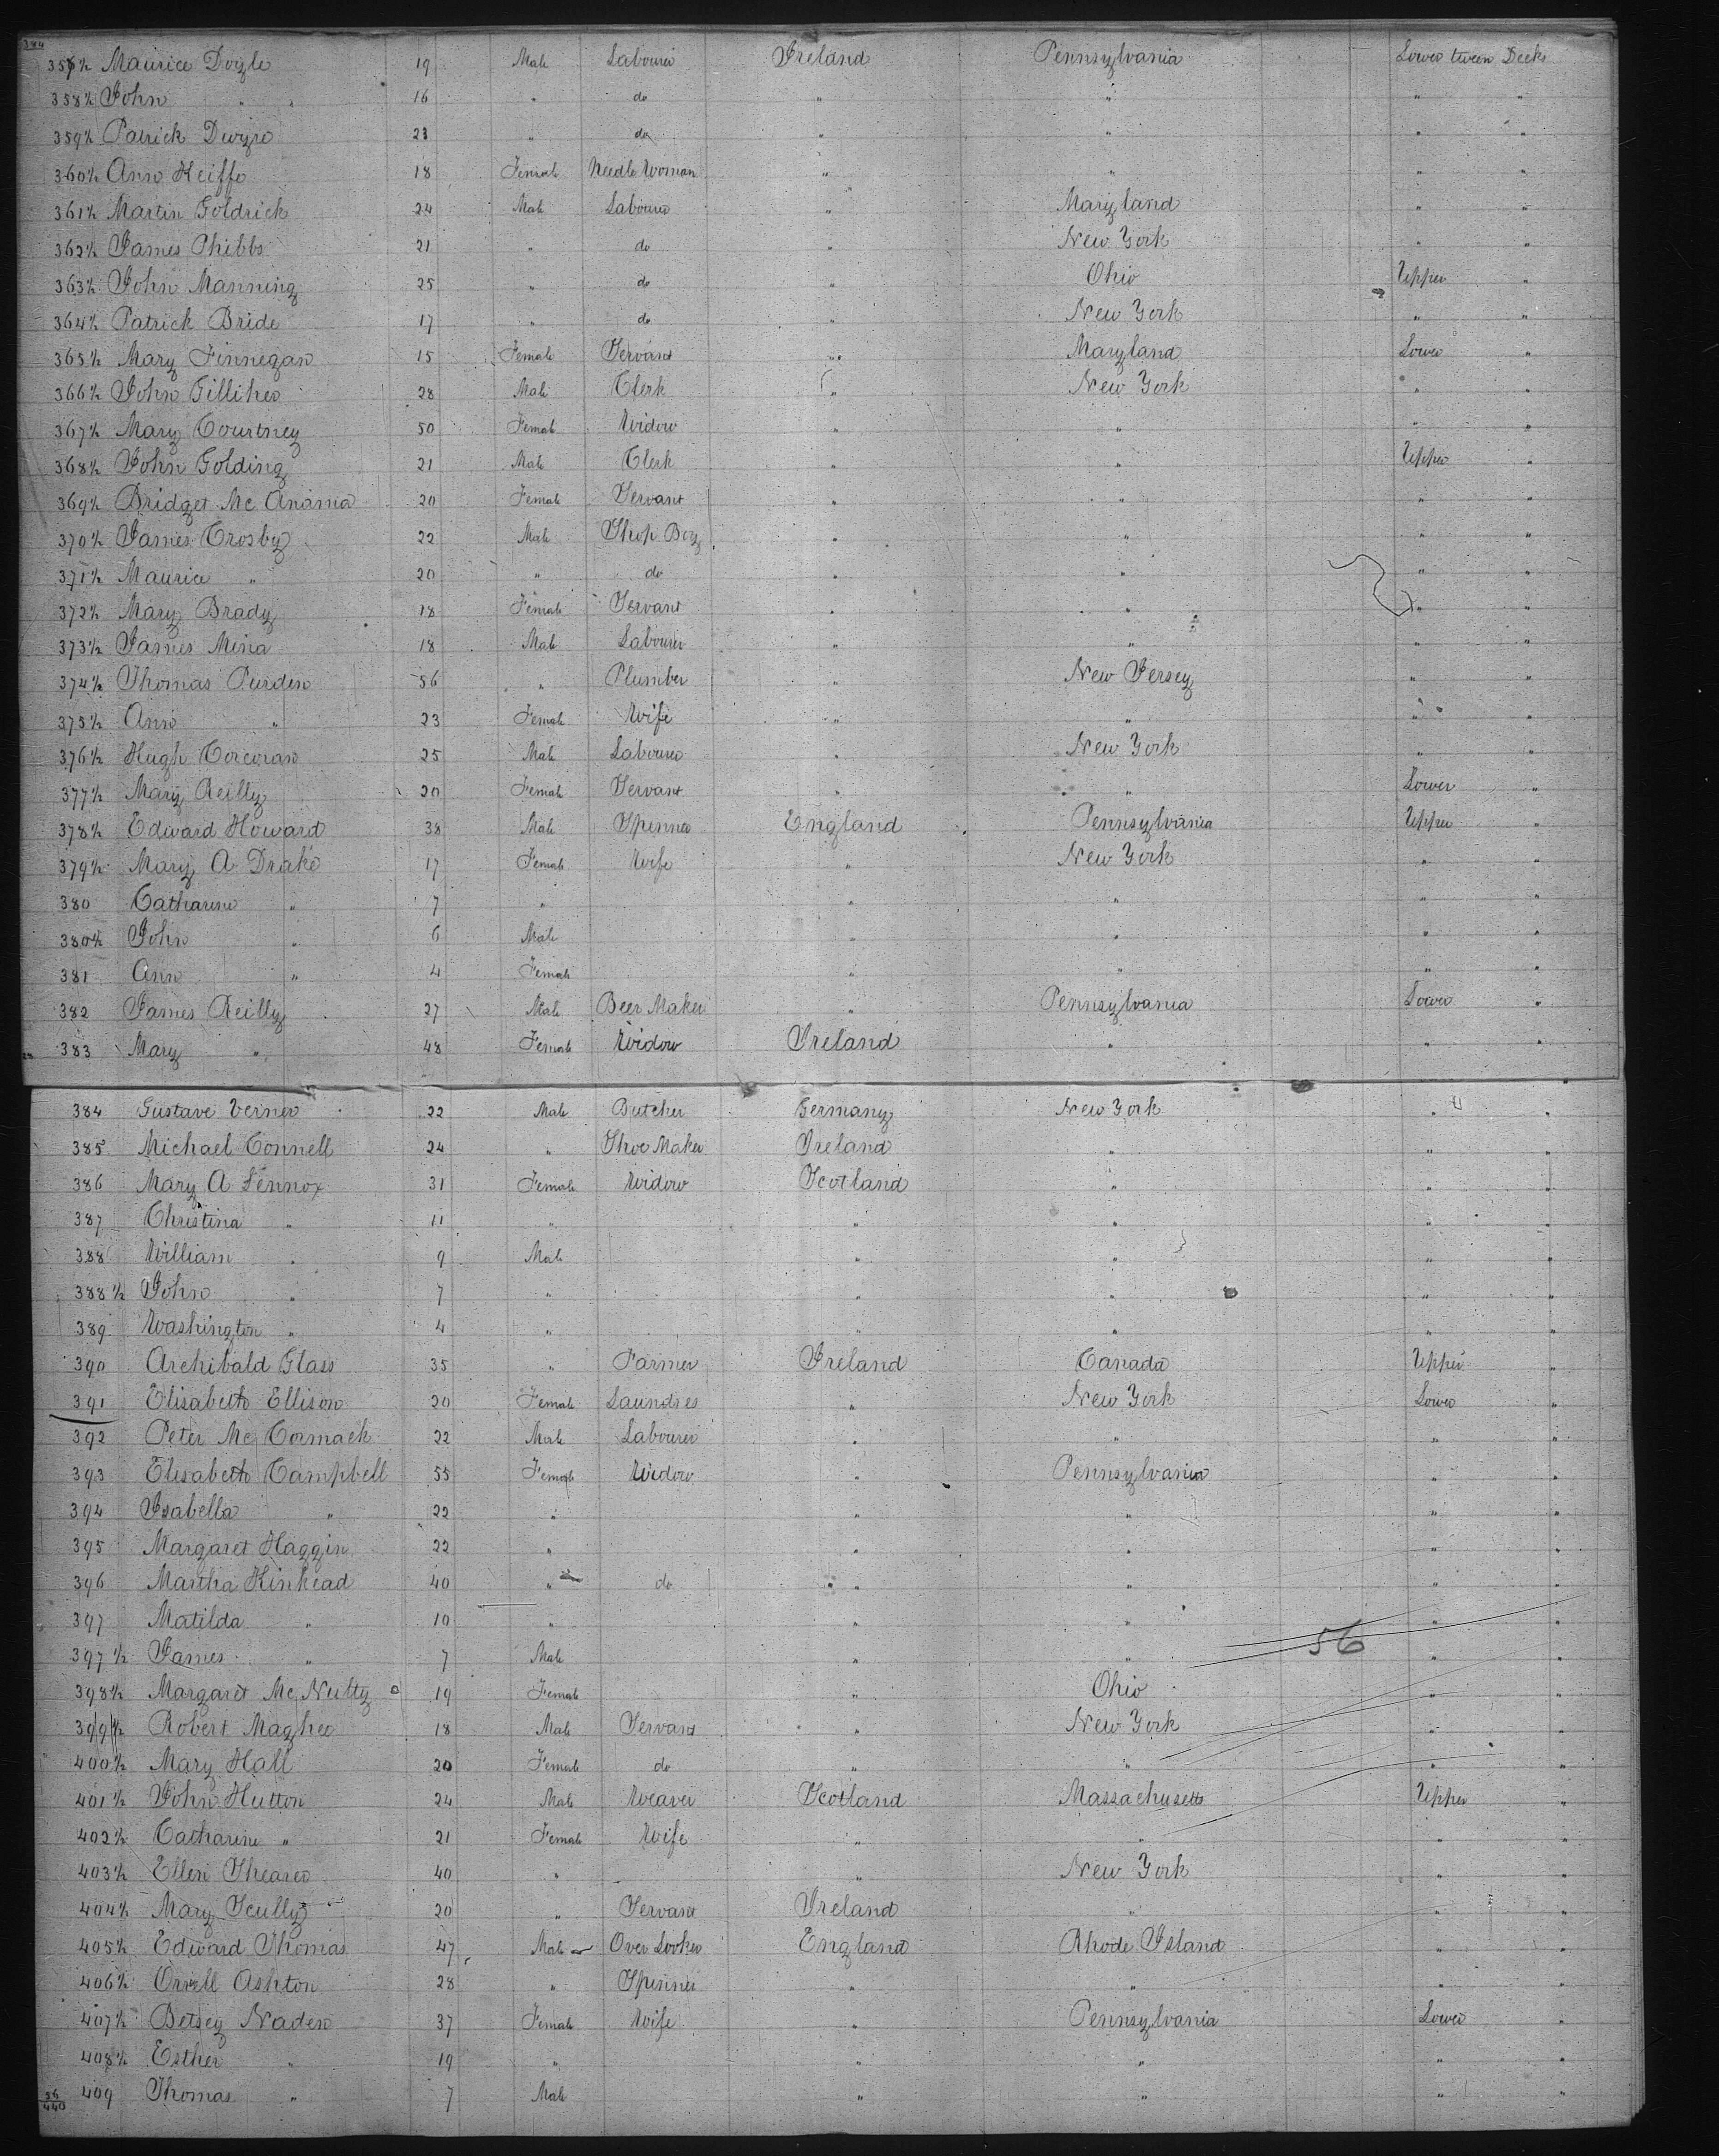 384
357½ Maurice Doyle 19 Male Labourer Ireland Pennsylvania Lower tween Decks
358½ John " " 16 " do " " " "
359½ Patrick Dwyre 23 " do " " " "
360½ Ann Keiffe 18 Female Needle Woman " " " "
361½ Martin Goldrick 24 Male Labourer " Maryland " "
362½ James Phibbs 21 " do " New York " "
363½ John Manning 25 " do " Ohio Upper "
364½ Patrick Bride 17 " do " New York " "
365½ Mary Finnegan 15 Female Servant " Maryland Lower "
366½ John Gilliher 28 Male Clerk " New York " "
367½ Mary Courtney 50 Female Widow " " " "
368½ John Golding 21 Male Clerk " " Upper "
369½ Bridget Mc Anama 20 Female Servant " " " "
370½ James Crosby 22 Male Shop Boy " " " "
371½ Maurice " 20 " do " " " "
372½ Mary Brady 18 Female Servant " " " "
373½ James Mina 18 Male Labourer " " " "
374½ Thomas Purden 56 " Plumber " New Jersey " "
375½ Ann " 23 Female Wife " " " "
376½ Hugh Corcoran 25 Male Labourer " New York " "
377½ Mary Reilly 20 Female Servant " " Lower "
378½ Edward Howard 38 Male Spinner England Pennsylvania Upper "
379½ Mary A Drake 17 Female Wife " New York " "
380 Catharine " 7 " " " " "
380½ John " 6 Male " " " "
381 Ann " 4 Female " " " "
382 James Reilly 27 Male Beer Maker " Pennsylvania Lower "
383 Mary " 48 Female Widow Ireland " " "
384 Gustave Verner 22 Male Butcher Germany New York " "
385 Michael Connell 24 " Shoe Maker Ireland " " "
386 Mary A Lennox 31 Female Widow Scotland " " "
387 Christina " 11 " " " " "
388 William " 9 Male " " " "
388½ John " 7 " " " " "
389 Washington " 4 " " " " "
390 Archibald Glass 35 " Farmer Ireland Canada Upper "
391 Elisabeth Ellison 20 Female Laundres " New York Lower "
392 Peter Mc Cormack 22 Male Labourer " " " "
393 Elisabeth Campbell 55 Female Widow " Pennsylvania " "
394 Isabella " 22 " " " " "
395 Margaret Haggin 22 " " " " "
396 Martha Kinkead 40 " do " " " "
397 Matilda " 10 " " " " "
56
397½ James " 7 Male " " " "
398½ Margaret Mc Nutty 19 Female " Ohio " "
399½ Robert Maghee 18 Male Servant " New York " "
400½ Mary Hall 20 Female do " " " "
401½ John Hutton 24 Male Weaver Scotland Massachusetts Upper "
402½ Catharine " 21 Female Wife " " " "
403½ Ellen Shearer 40 " " New York " "
404½ Mary Scully 20 " Servant Ireland " " "
405½ Edward Thomas 47 Male Over Looker England Rhode Island " "
406½ Orrell Ashton 28 " Spinner " " " "
407½ Betsey Naden 37 Female Wife " Pennsylvania Lower "
408½ Esther " 19 " " " " "
409 Thomas " 7 Male " " " "